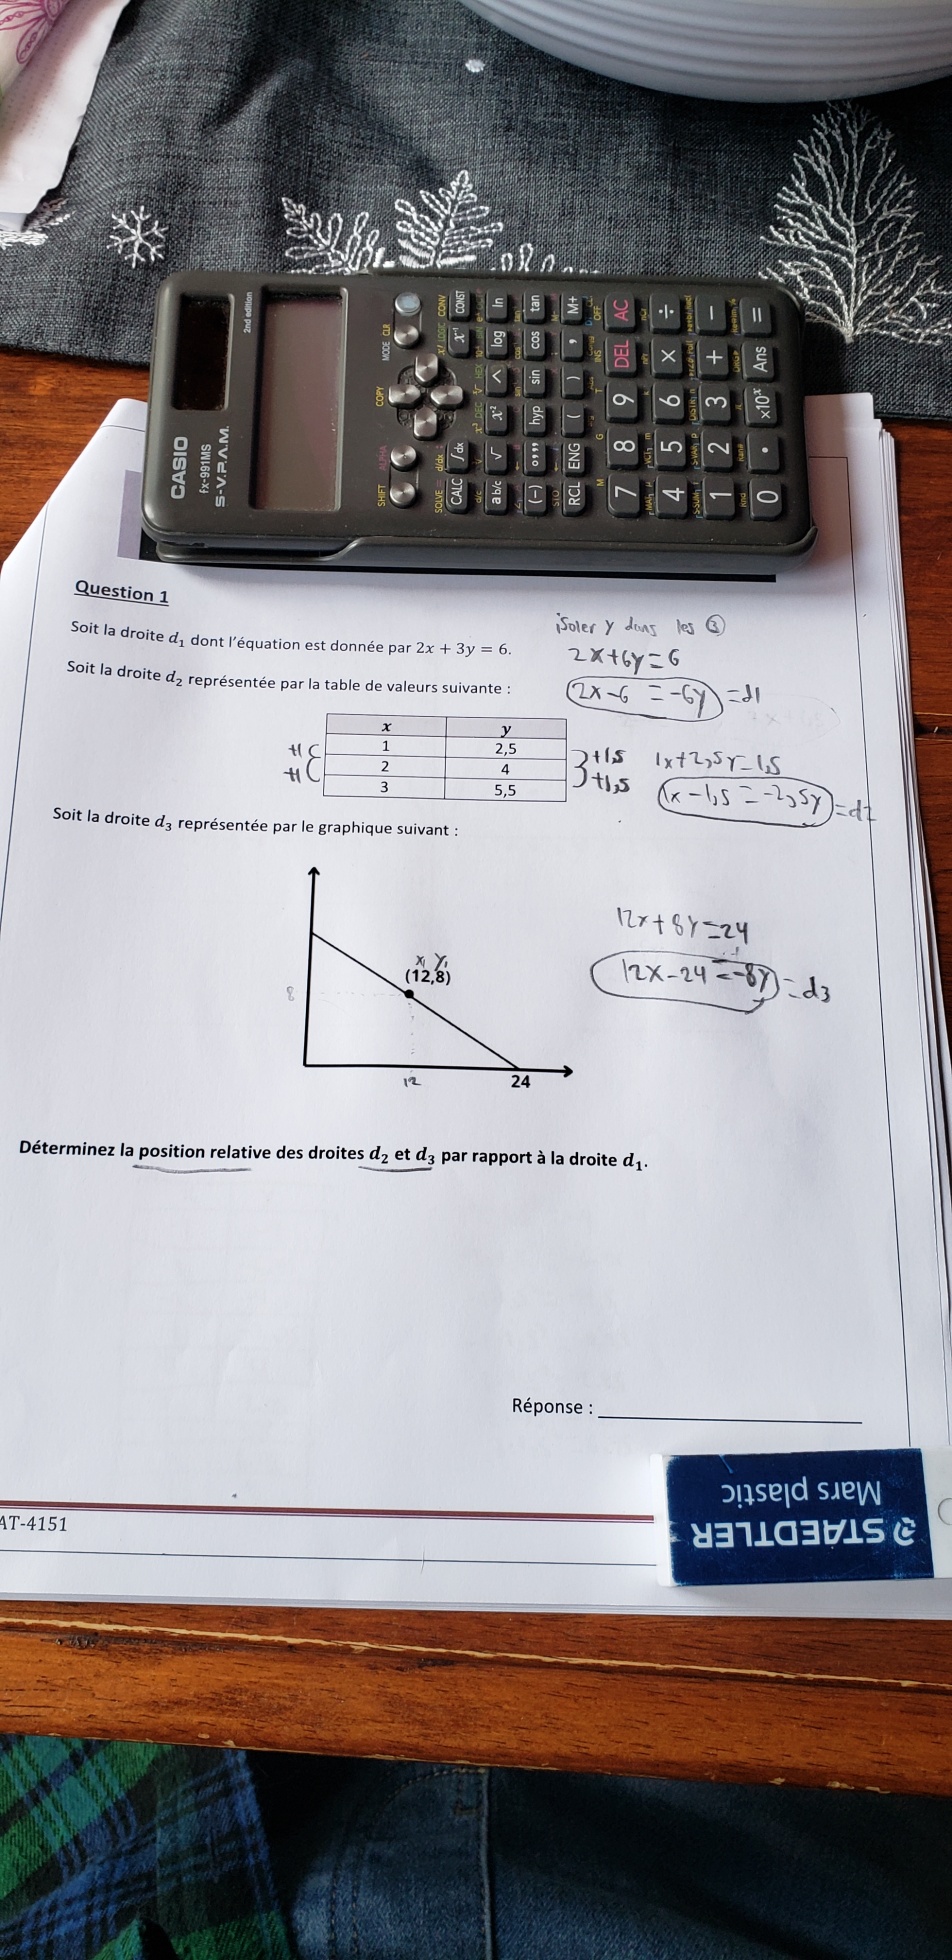 CASIO
fx-991MS
S-V.P.A.M.
2nd edition
SHIFT
ALPHA
COPY
MODE CLR
SOLVE = d/dx : x! LOGIC CONV
CALC ∫dx x⁻¹ CONST
a b/c √ x² ^ log ln
(−) °,,, hyp sin cos tan
RCL ENG ( ) , M+
7 8 9 DEL AC
4 5 6 × ÷
1 2 3 + −
0 . ×10ˣ Ans =
Question 1
Soit la droite d₁ dont l'équation est donnée par 2x + 3y = 6.
Soit la droite d₂ représentée par la table de valeurs suivante :
isoler y dans les 3
2x+6y=6
2x-6 = -6y =d1
x y
1 2,5
2 4
3 5,5
+1
+1
+1,5
+1,5
1x+2,5y=1,5
1x-1,5=-2,5y =d2
Soit la droite d₃ représentée par le graphique suivant :
x₁ y₁
(12,8)
8
12
24
12x+8y=24
12x-24=-8y =d3
Déterminez la position relative des droites d₂ et d₃ par rapport à la droite d₁.
Réponse :
AT-4151
STAEDTLER
Mars plastic